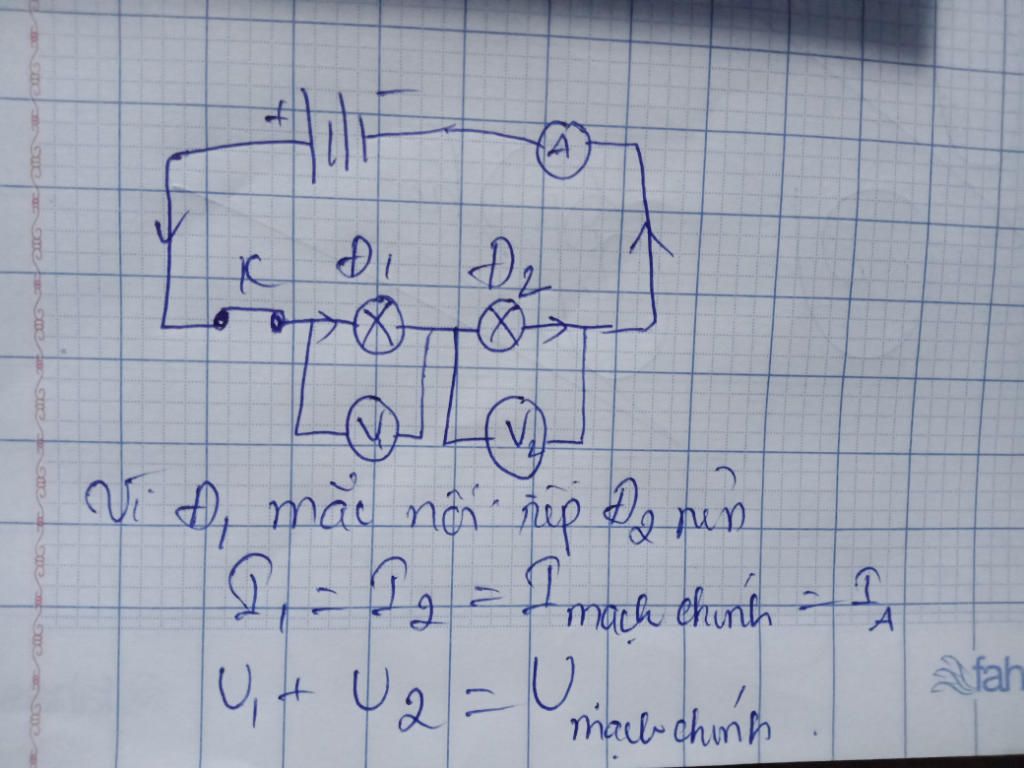 + −
A
K Đ1 Đ2
V1 V2
Vì Đ1 mắc nối tiếp Đ2 nên
I1 = I2 = I mạch chính = IA
fah
U1 + U2 = U mạch chính.